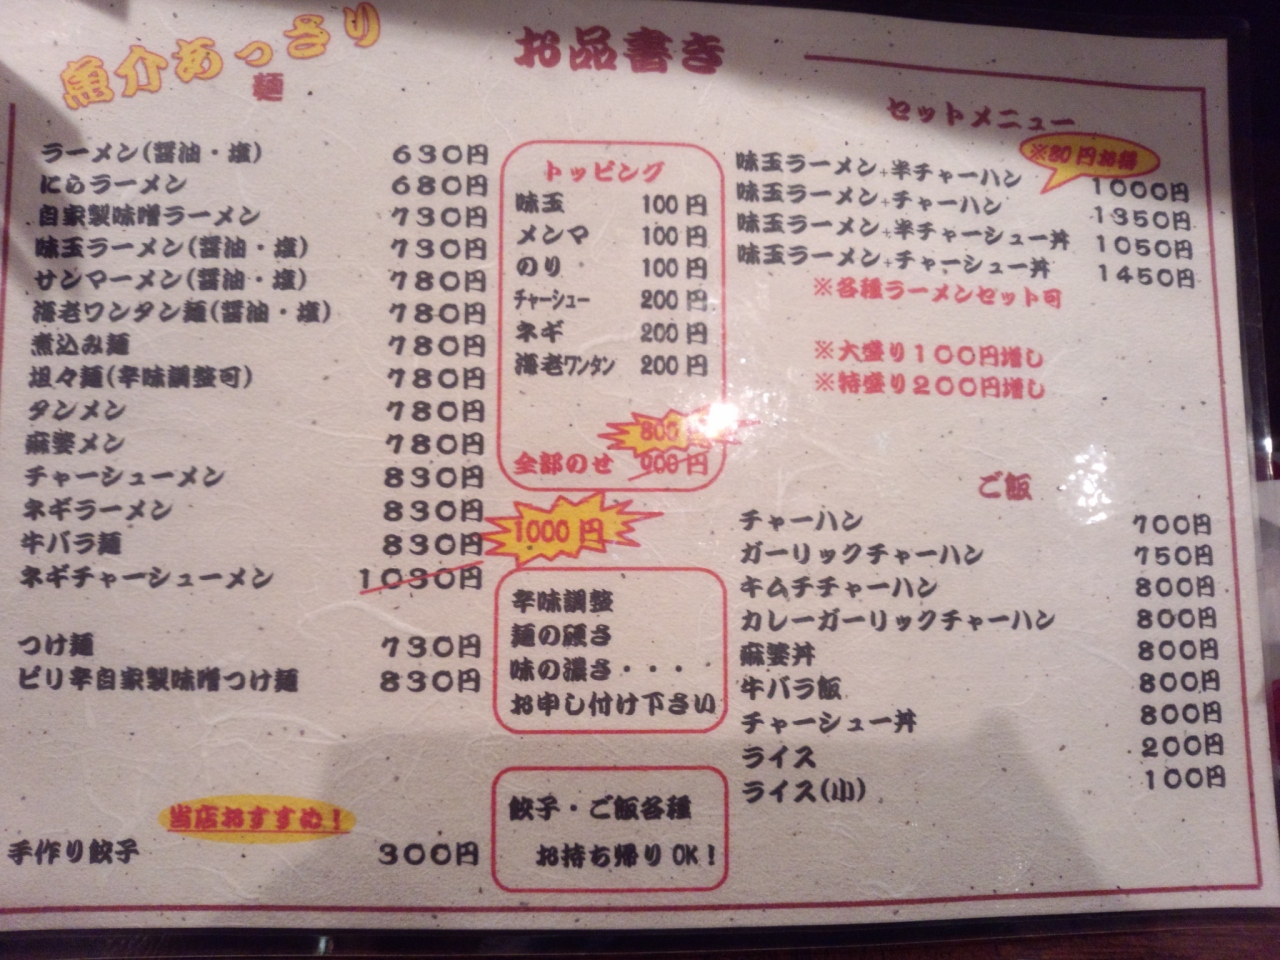 お品書き
魚介あっさり
麺
ラーメン(醤油・塩) 630円
にらラーメン 680円
自家製味噌ラーメン 730円
味玉ラーメン(醤油・塩) 730円
サンマーメン(醤油・塩) 780円
海老ワンタン麺(醤油・塩) 780円
煮込み麺 780円
坦々麺(辛味調整可) 780円
タンメン 780円
麻婆メン 780円
チャーシューメン 830円
ネギラーメン 830円
牛バラ麺 830円
ネギチャーシューメン 1030円 1000円
つけ麺 730円
ピリ辛自家製味噌つけ麺 830円
当店おすすめ!
手作り餃子 300円
トッピング
味玉 100円
メンマ 100円
のり 100円
チャーシュー 200円
ネギ 200円
海老ワンタン 200円
800円
全部のせ 900円
辛味調整
麺の硬さ
味の濃さ・・・・
お申し付け下さい
餃子・ご飯各種
お持ち帰りOK!
セットメニュー
※80円お得
味玉ラーメン+半チャーハン 1000円
味玉ラーメン+チャーハン 1350円
味玉ラーメン+半チャーシュー丼 1050円
味玉ラーメン+チャーシュー丼 1450円
※各種ラーメンセット可
※大盛り100円増し
※特盛り200円増し
ご飯
チャーハン 700円
ガーリックチャーハン 750円
キムチチャーハン 800円
カレーガーリックチャーハン 800円
麻婆丼 800円
牛バラ飯 800円
チャーシュー丼 800円
ライス 200円
ライス(小) 100円